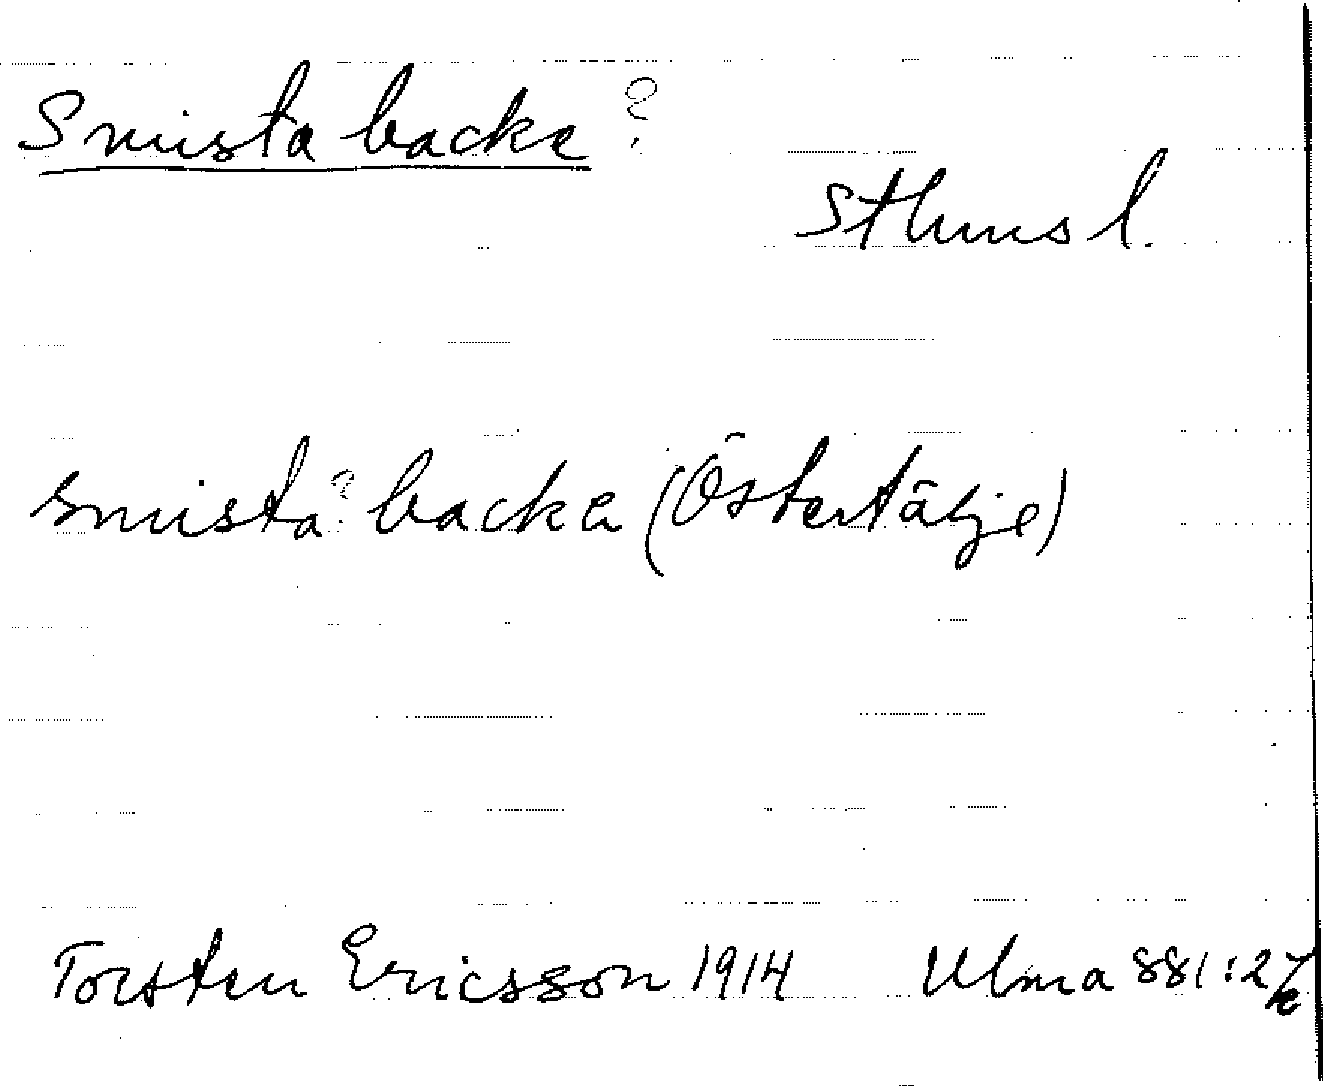 Smista backe?
Sthms l.
smista? backa (Östertälje)
Torsten Ericsson 1914 Ulma 881:27